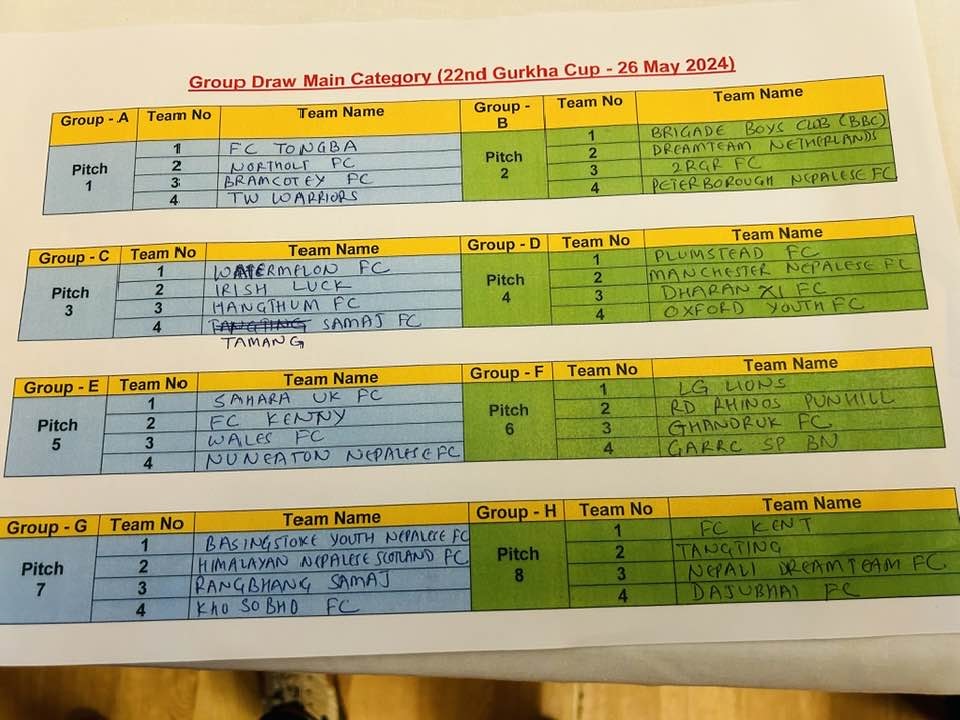 Group Draw Main Category (22nd Gurkha Cup - 26 May 2024)
Group - A Team No Team Name
Pitch 1
1 FC TONGBA
2 NORTHOLT FC
3 BRAMCOTEY FC
4 TW WARRIORS
Group - B Team No Team Name
Pitch 2
1 BRIGADE BOYS CLUB (BBC)
2 DREAMTEAM NETHERLANDS
3 2RGR FC
4 PETERBOROUGH NEPALESE FC
Group - C Team No Team Name
Pitch 3
1 WATERMELON FC
2 IRISH LUCK
3 HANGTHUM FC
4 TANGTING SAMAJ FC
TAMANG
Group - D Team No Team Name
Pitch 4
1 PLUMSTEAD FC
2 MANCHESTER NEPALESE FC
3 DHARAN XI FC
4 OXFORD YOUTH FC
Group - E Team No Team Name
Pitch 5
1 SAHARA UK FC
2 FC KENNY
3 WALES FC
4 NUNEATON NEPALESE FC
Group - F Team No Team Name
Pitch 6
1 LG LIONS
2 RD RHINOS PUNHILL
3 GHANDRUK FC
4 GARRC SP BN
Group - G Team No Team Name
Pitch 7
1 BASINGSTOKE YOUTH NEPALESE FC
2 HIMALAYAN NEPALESE SCOTLAND FC
3 RANGBHANG SAMAJ
4 KHO SOBHO FC
Group - H Team No Team Name
Pitch 8
1 FC KENT
2 TANGTING
3 NEPALI DREAMTEAM FC
4 DAJUBHAI FC